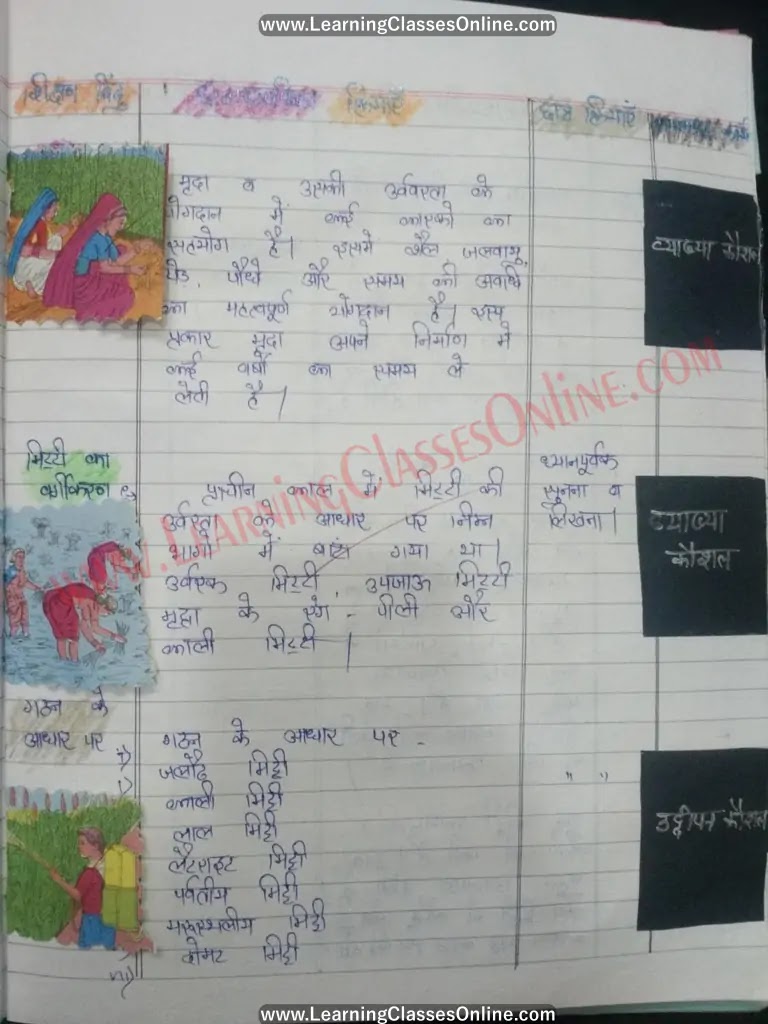 www.LearningClassesOnline.com
शिक्षण बिंदु
क्रियाएं
छात्र क्रियाएं
मृदा व उसकी उर्वरता के
योगदान में कई कारकों का
सहयोग है। इसमें शैल, जलवायु,
पेड़, पौधे और समय की अवधि
का महत्वपूर्ण योगदान है। इस
प्रकार मृदा अपने निर्माण में
कई वर्षों का समय ले
लेती है।
व्याख्या कौशल
मिट्टी का
वर्गीकरण
प्राचीन काल में मिट्टी की
उर्वरता के आधार पर निम्न
भागों में बांटा गया था।
उर्वरक मिट्टी, उपजाऊ मिट्टी
मृदा के रंग - पीली और
काली मिट्टी।
ध्यानपूर्वक
सुनना व
लिखना।
व्याख्या
कौशल
WWW.LEARNINGCLASSESONLINE.COM
गठन के
आधार पर
गठन के आधार पर -
i) जलोढ़ मिट्टी
काली मिट्टी
लाल मिट्टी
लैटराइट मिट्टी
पर्वतीय मिट्टी
मरुस्थलीय मिट्टी
दोमट मिट्टी
" "
उद्दीपन कौशल
www.LearningClassesOnline.com